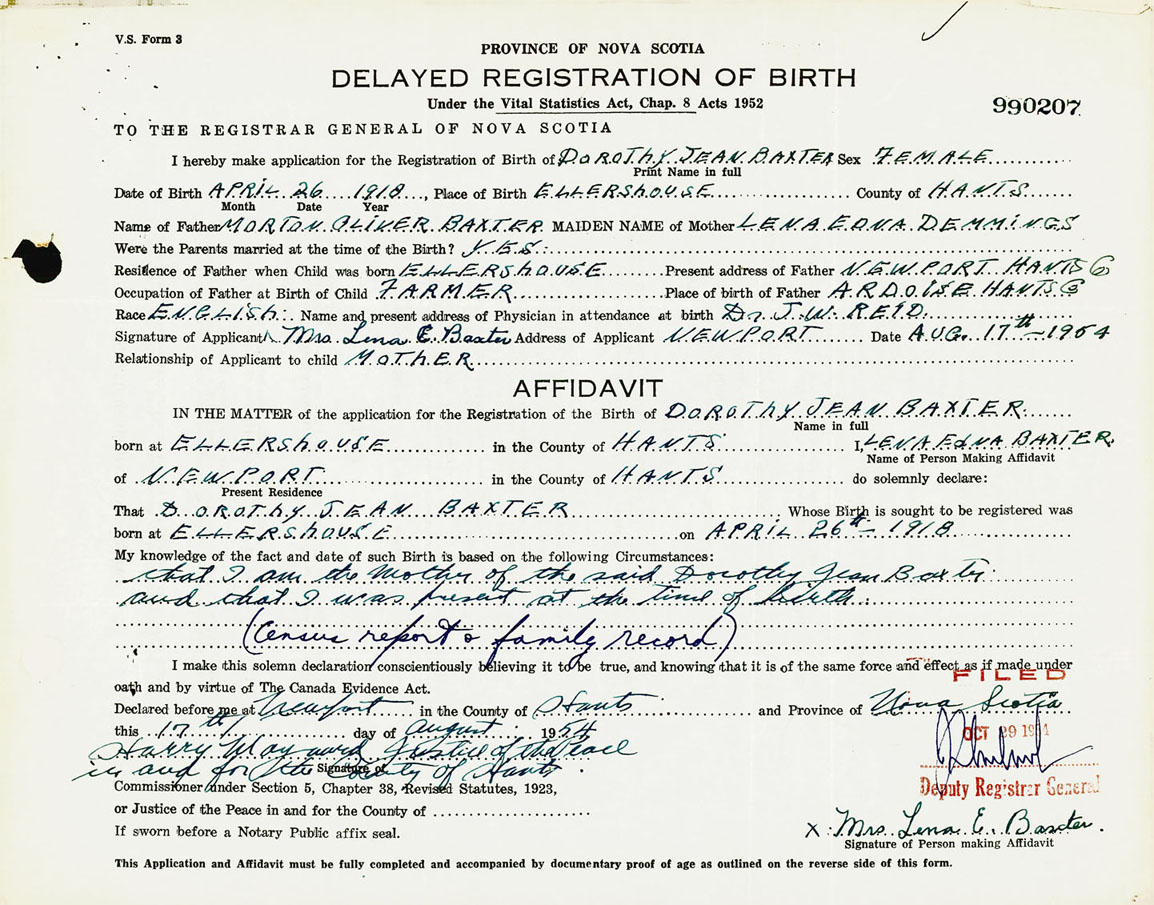 V.S. Form 3
PROVINCE OF NOVA SCOTIA
DELAYED REGISTRATION OF BIRTH
Under the Vital Statistics Act, Chap. 8 Acts 1952
990207
TO THE REGISTRAR GENERAL OF NOVA SCOTIA
I hereby make application for the Registration of Birth of DOROTHY JEAN BAXTER Sex FEMALE
Print Name in full
Date of Birth APRIL 26 1918, Place of Birth ELLERSHOUSE County of HANTS
Month Date Year
Name of Father MORTON OLIVER BAXTER MAIDEN NAME of Mother LENA EDNA DEMMINGS
Were the Parents married at the time of the Birth? YES
Residence of Father when Child was born ELLERSHOUSE Present address of Father NEWPORT HANTS C
Occupation of Father at Birth of Child FARMER Place of birth of Father ARDOISE HANTS C
Race ENGLISH Name and present address of Physician in attendance at birth Dr. J. W. REID
Signature of Applicant Mrs. Lena E. Baxter Address of Applicant NEWPORT Date AUG. 17th 1954
Relationship of Applicant to child MOTHER
AFFIDAVIT
IN THE MATTER of the application for the Registration of the Birth of DOROTHY JEAN BAXTER
Name in full
born at ELLERSHOUSE in the County of HANTS I, LENA EDNA BAXTER
Name of Person Making Affidavit
of NEWPORT in the County of HANTS do solemnly declare:
Present Residence
That DOROTHY JEAN BAXTER Whose Birth is sought to be registered was
born at ELLERSHOUSE on APRIL 26th 1918
My knowledge of the fact and date of such Birth is based on the following Circumstances:
that I am the Mother of the said Dorothy Jean Baxter
and that I was present at the time of birth.
(Census report & family record)
I make this solemn declaration conscientiously believing it to be true, and knowing that it is of the same force and effect as if made under
oath and by virtue of The Canada Evidence Act.
FILED
Declared before me at Newport in the County of Hants and Province of Nova Scotia
this 17th day of August 1954
OCT 29 1954
Harry Maynard Justice of the Peace
in and for the County of Hants
Signature of
Commissioner under Section 5, Chapter 38, Revised Statutes, 1923,
Deputy Registrar General
or Justice of the Peace in and for the County of
If sworn before a Notary Public affix seal.
X: Mrs. Lena E. Baxter.
Signature of Person making Affidavit
This Application and Affidavit must be fully completed and accompanied by documentary proof of age as outlined on the reverse side of this form.